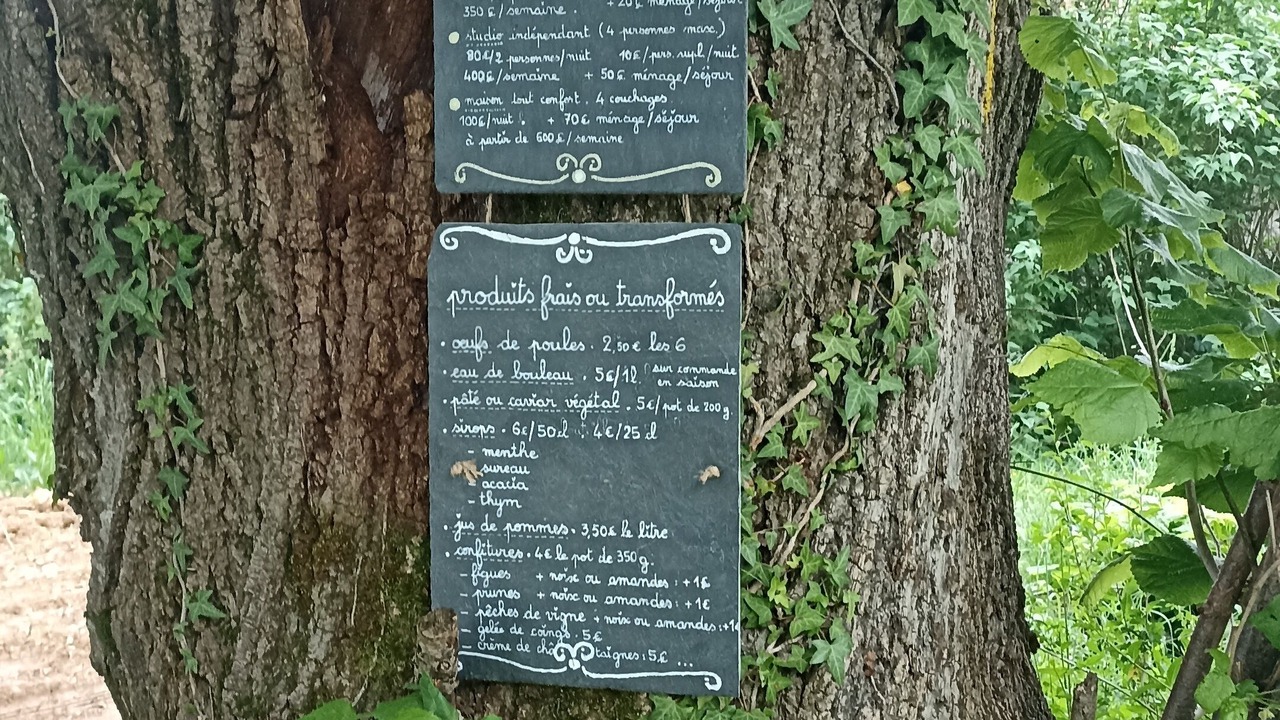 350€/semaine. +20€ ménage/séjour
studio indépendant (4 personnes max.)
80€/2 personnes/nuit 10€/pers. supl/nuit
400€/semaine + 50€ ménage/séjour
maison tout confort. 4 couchages
100€/nuit. + 70€ ménage/séjour
à partir de 600€/semaine
produits frais ou transformés
• œufs de poules. 2,50€ les 6
• eau de bouleau. 5€/1l. sur commande
en saison
• pâté ou caviar végétal. 5€/pot de 200g.
• sirops. 6€/50cl 4€/25cl
- menthe
- sureau
- acacia
- thym
• jus de pommes. 3,50€ le litre
• confitures. 4€ le pot de 350g.
- figues + noix ou amandes: +1€
- prunes + noix ou amandes: +1€
- pêches de vigne + noix ou amandes: +1€
- gelée de coings. 5€
- crème de châtaignes: 5€ ...